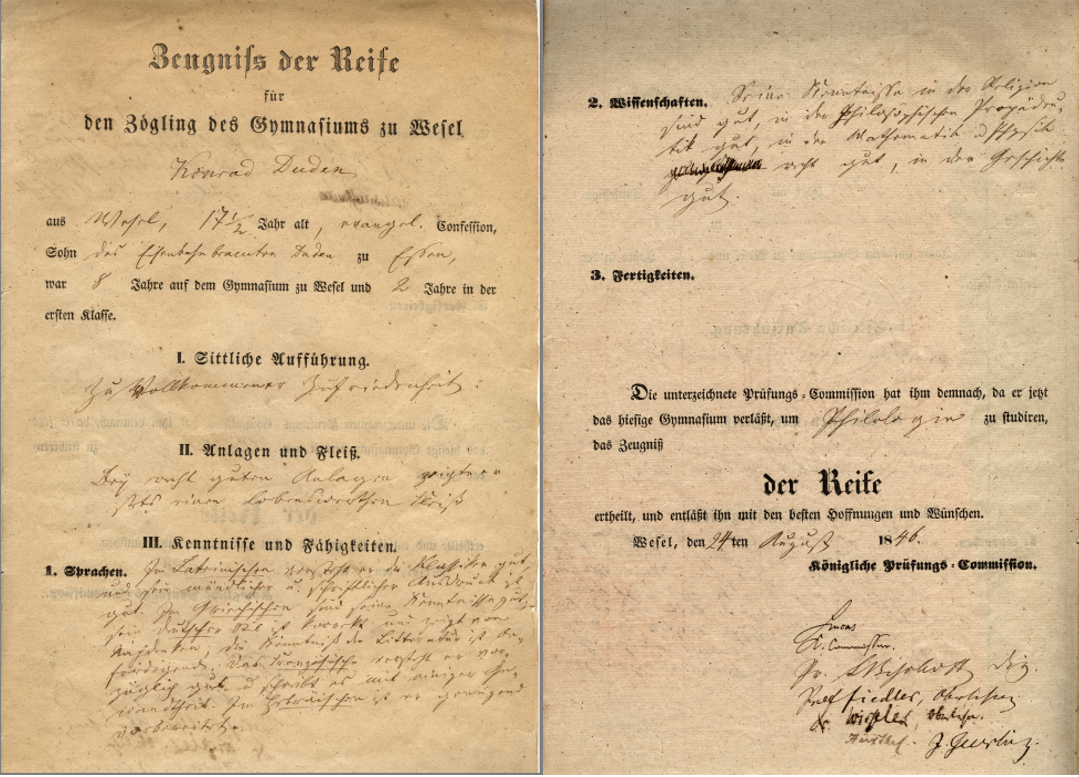 Zeugniß der Reife
für
den Zögling des Gymnasiums zu Wesel
Konrad Duden
aus Wesel, 17 1/2 Jahr alt, evangel. Confession,
Sohn des Eisenbahnbeamten Duden zu Essen,
war 8 Jahre auf dem Gymnasium zu Wesel und 2 Jahre in der
ersten Klasse.
I. Sittliche Aufführung.
Zu vollkommener Zufriedenheit.
II. Anlagen und Fleiß.
Bey recht guten Anlagen zeigte er
stets einen lobenswerthen Fleiß
III. Kenntnisse und Fähigkeiten.
1. Sprachen. Im Lateinischen versteht er die Klassiker gut,
und sein mündlicher u. schriftlicher Ausdruck ist
gut. Im Griechischen sind seine Kenntnisse gut,
sein deutscher Stil ist korrekt und zeigt von
Nachdenken, die Kenntniß der Litteratur ist be-
friedigend. Das Französische versteht er vor-
züglich gut u. schreibt es mit einiger Ge-
wandtheit. Im Hebräischen ist er genügend
vorbereitet.
2. Wissenschaften. Seine Kenntnisse in der Religion
sind gut, in der Philosophischen Propädeu-
tik gut, in der Mathematik u Physik
recht gut, in der Geschichte
gut.
3. Fertigkeiten.
Die unterzeichnete Prüfungs-Commission hat ihm demnach, da er jetzt
das hiesige Gymnasium verläßt, um Philologie zu studiren,
das Zeugniß
der Reife
ertheilt, und entläßt ihn mit den besten Hoffnungen und Wünschen.
Wesel, den 24ten August 1846.
Königliche Prüfungs-Commission.
K. Commissar.
Dir.
Prof Fiedler, Oberlehrer
Dr. Wisseler, Oberlehrer.